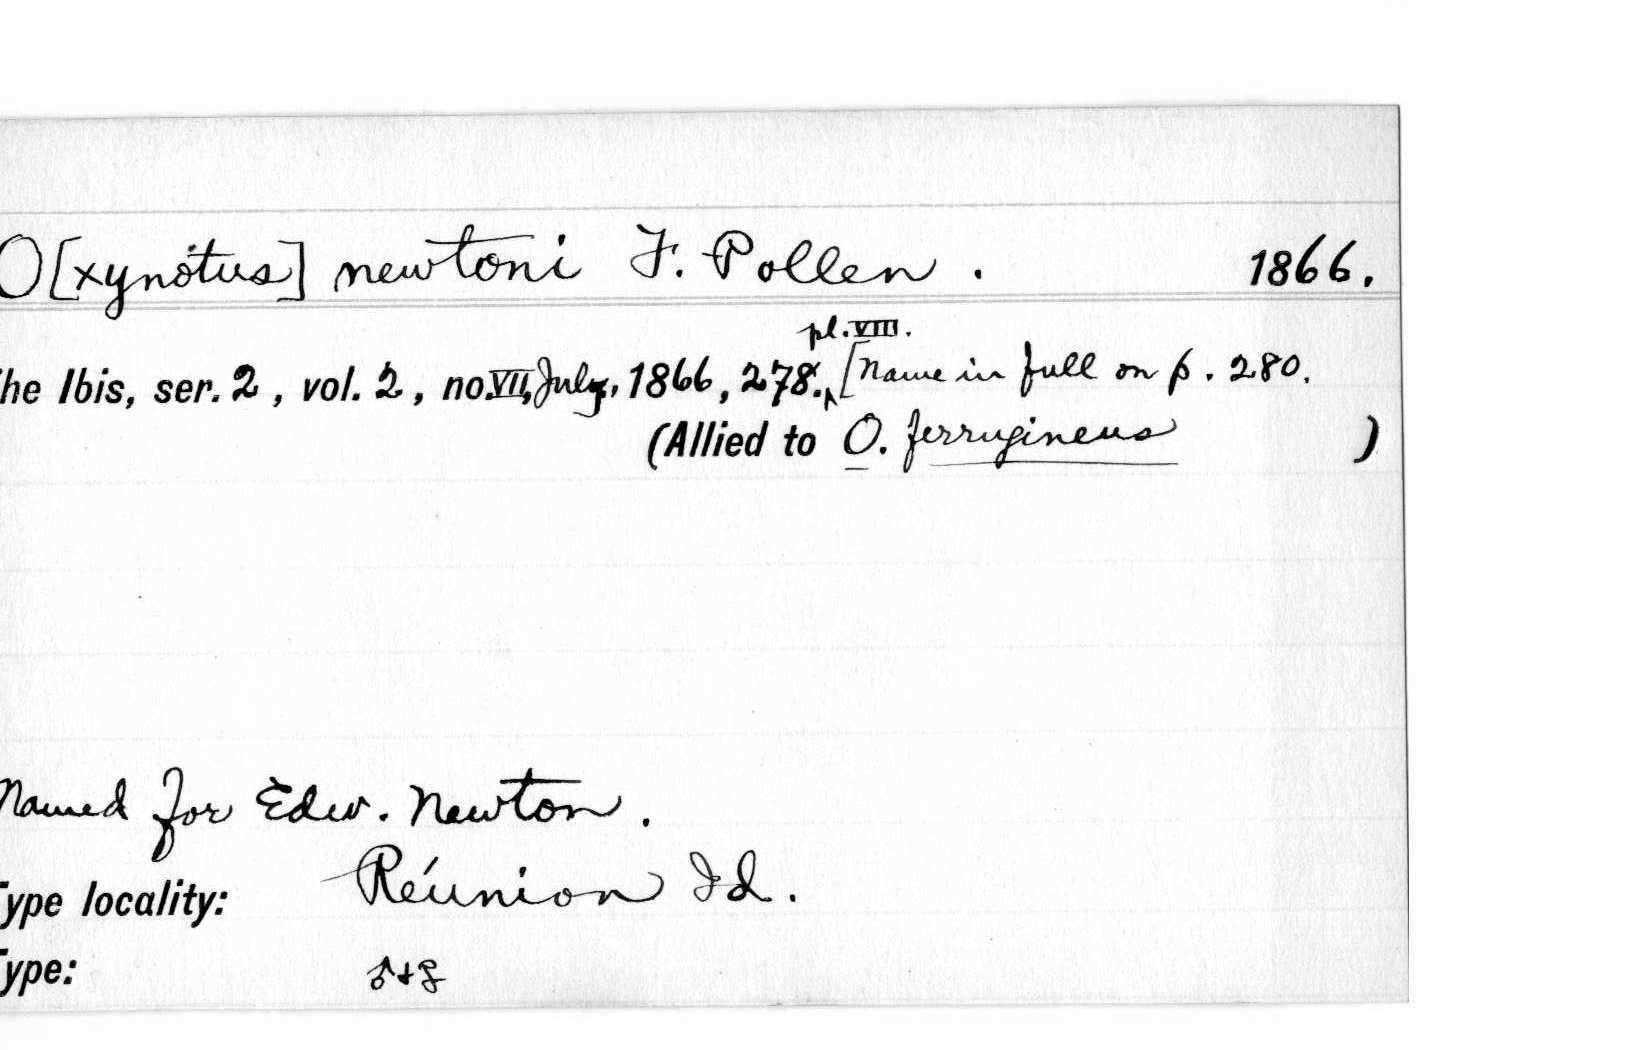 O[xynotus] newtoni F. Pollen. 1866.
pl. VIII.
he Ibis, ser. 2, vol. 2, no. VII, July, 1866, 278. [Name in full on p. 280.
(Allied to O. ferrugineus )
Named for Edw. Newton.
Type locality: Réunion Id.
Type: ♂+♀